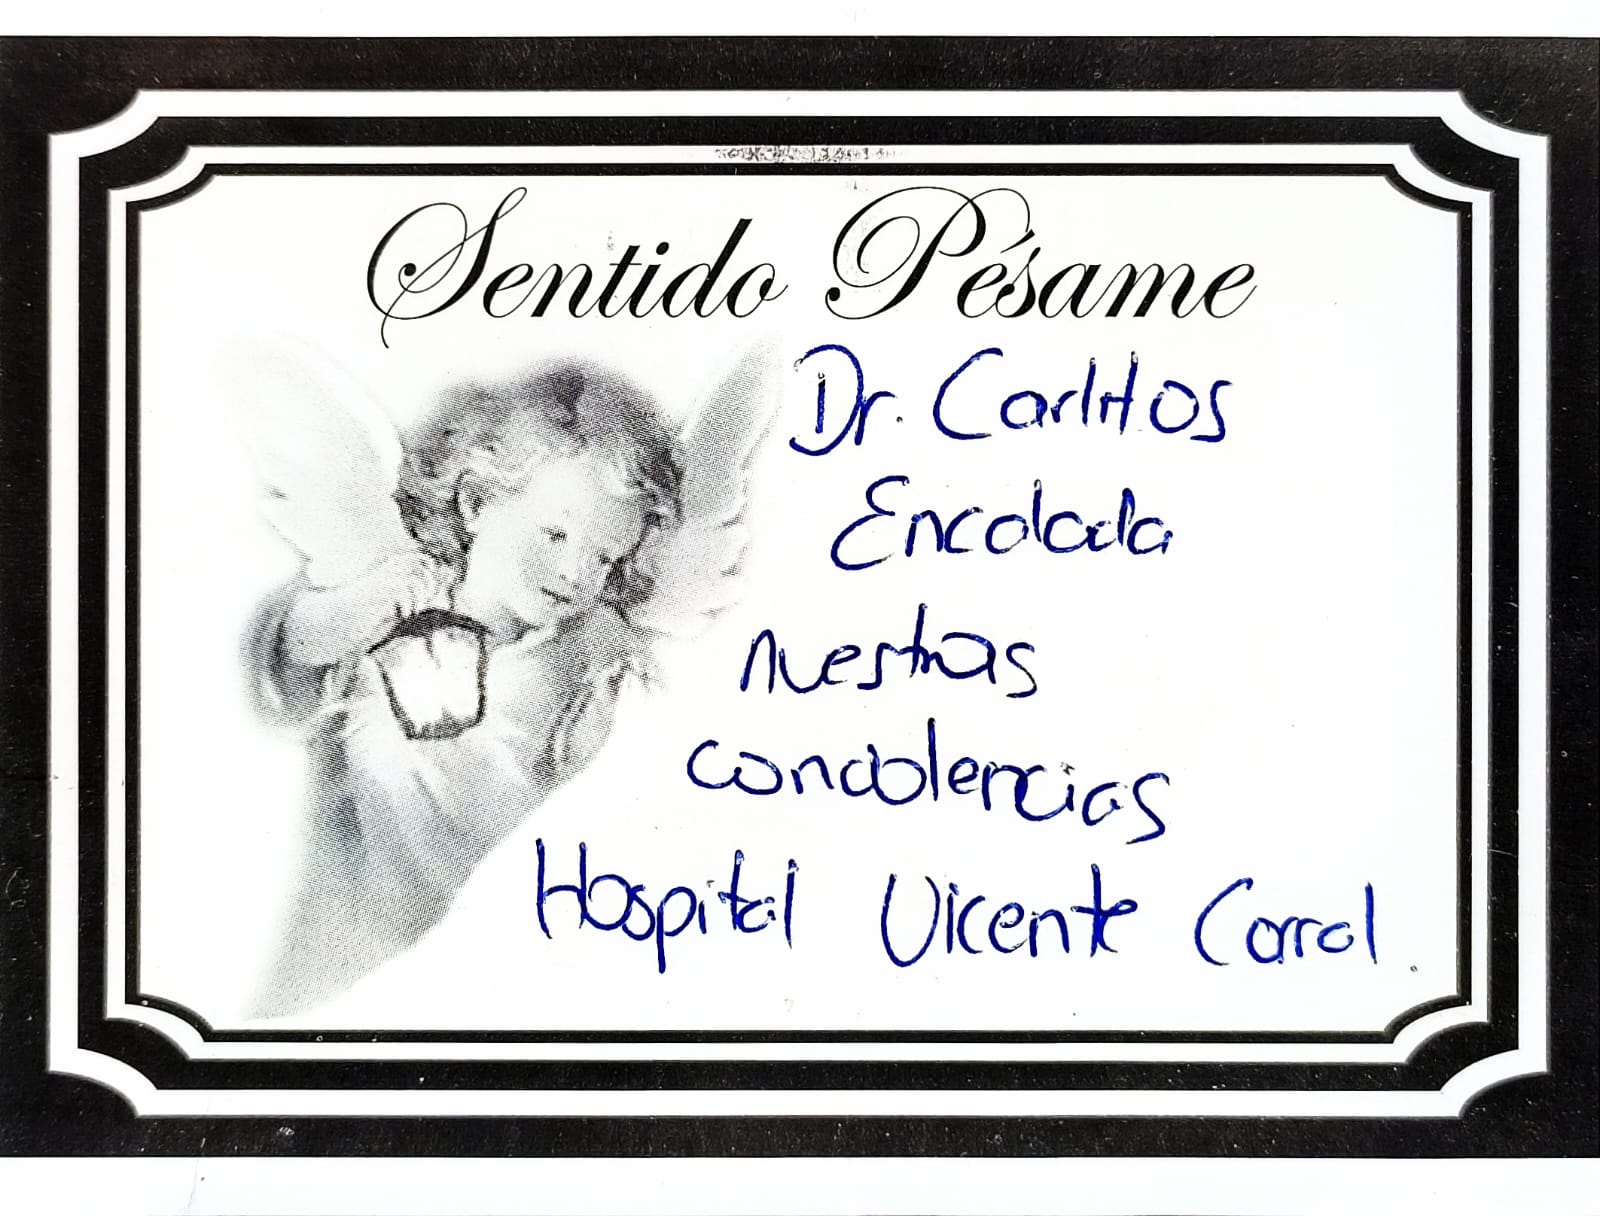 Sentido Pésame
Dr. Carlitos
Encalada
nuestras
condolencias
Hospital Vicente Corral